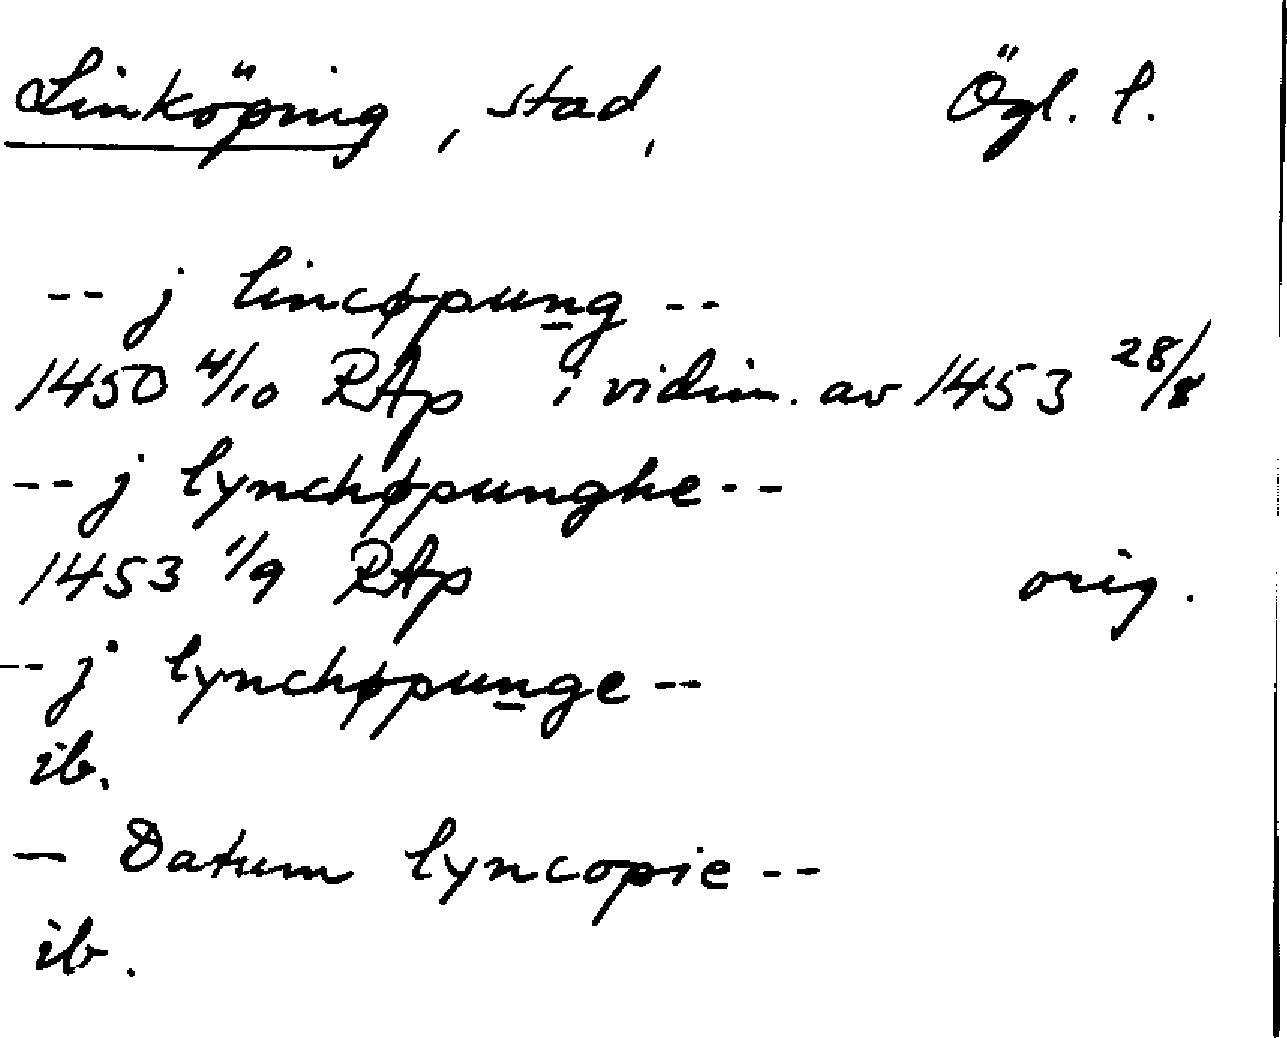 Linköping, stad, Ögl. l.
-- j lincøpung --
1450 4/10 RAp i vidim. av 1453 28/8
-- j lynchøpunghe --
1453 1/9 RAp orig.
-- j lynchøpunge --
ib.
— Datum lyncopie --
ib.